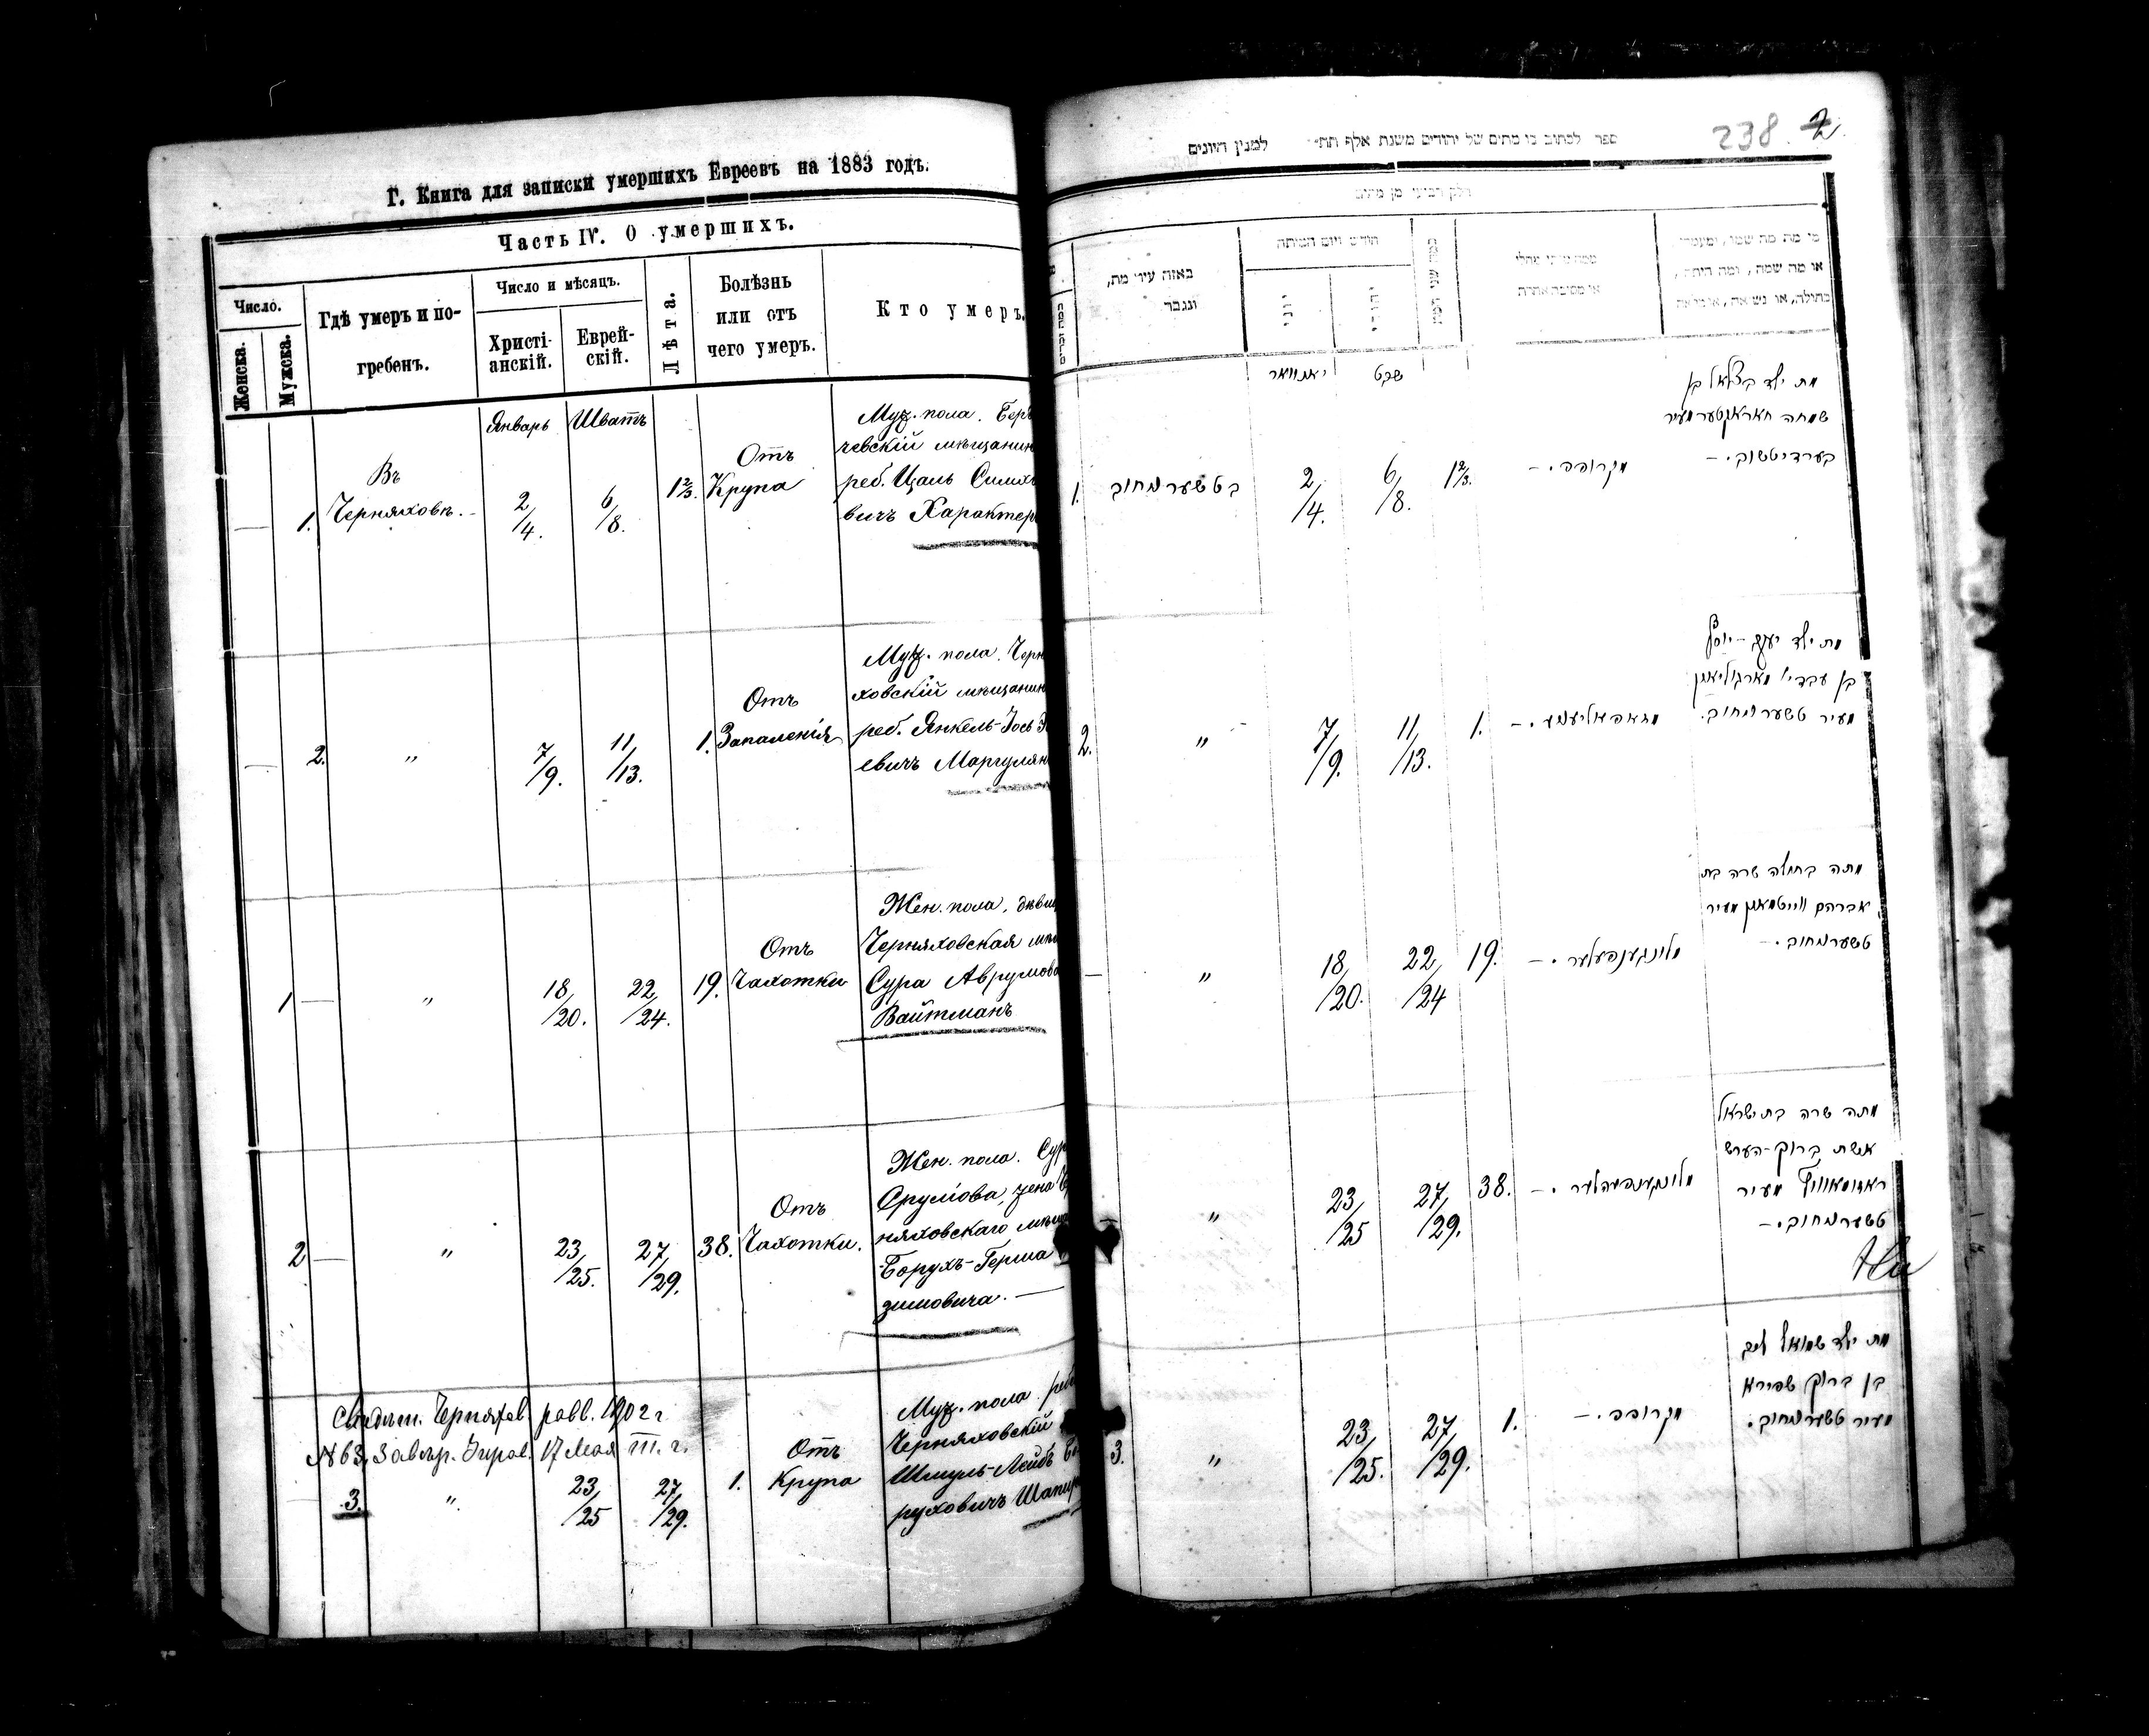 Г. Книга для записки умершихъ Евреевъ на 1883 годъ.
Часть IV. О умершихъ.
Число.
Женска.
Мужска.
Гдѣ умеръ и по-
гребенъ.
Число и мѣсяцъ.
Христі-
анскій.
Еврей-
скій.
Лѣта.
Болѣзнь
или отъ
чего умеръ.
Кто умеръ.
Январь
Шватъ
— 1.
Въ
Черняховѣ.
2/4.
6/8.
1⅔.
Отъ
Крупа
Муж. пола. Бер
чевскій мѣщанин
реб. Цаль Симх
вичъ Характер
— 2.
"
7/9.
11/13.
1.
Отъ
Запаленія
Муж. пола. Черн
ховскій мѣщанин
реб. Янкель-Іось
евичъ Маргулян
1 —
"
18/20.
22/24.
19.
Отъ
Чахотки
Жен. пола, дѣви
Черняховская мѣ
Сура Аврумов
Вайтманъ
2 —
"
23/25.
27/29.
38.
Отъ
Чахотки.
Жен. пола. Сур
Срулiова, жена
няховскаго мѣщ
Борухъ-Герша
зимовича. —
Свидѣт. Черняхов. равв. 1902 г.
№ 63. 17 Мая т. г.
3.
"
23/25
27/29.
1.
Отъ
Крупа
Муж. пола. реб
Черняховскій
Шмуль-Лейбъ Бо
руховичъ Шапир
238 2
ספר לכתוב בו מתים של יהודים משנת אלף תת למנין היונים
חלק רביעי מן מתים
באזה עיר מת,
ונגבר
חודש ויום המיתה
יוני
יהודי
מי מת מה שמו,
או מה שמה, ומה היתה,
בתולה, או נשאה, או
יאנוואר
שבט
1.
בטשערנחוב
2/4.
6/8.
1⅔.
מקרופפ. —
מת ילד בצלאל בן
שמחה חאראקטער מעיר
בערדיטשוב. —
2.
"
7/9.
11/13.
1.
מת ילד יעקב-יוסף
בן עבדי' מארגוליאן
מעיר טשערנחוב.
—
"
18/20.
22/24
19.
מלונגענפעלער. —
מתה בתולה שרה בת
אברהם ווייטמאן מעיר
טשערנחוב. —
—
"
23/25
27/29.
38.
מלונגענפעהלער. —
מתה שרה בת ישראל
אשת ברוך-הערש
מעיר
טשערנחוב. —
3.
"
23/25.
27/29.
1.
מקרופפ. —
מת ילד שמואל ליב
בן ברוך שפירא
מעיר טשערנחוב.